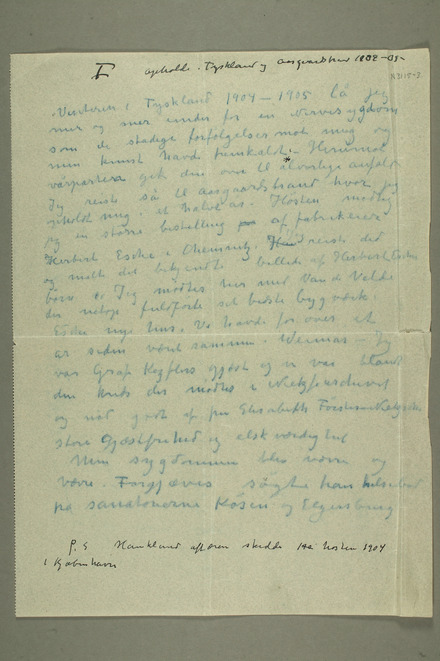 I opholdt. Tyskland og Aasgaardstrand 1902–05–
N 315-3
Vinteren i Tyskland 1904 – 1905 lå jeg
mer og mer under for en nervesygdom
som de stadige forfølgelser mot mig og
min kunst havde fremkaldt.
vårparten gik den over til alvorlige anfald
Jeg reiste så til Aasgaardstrand hvor jeg
opholdt mig i et halvt år. Høsten modtog
jeg en større bestilling på af fabrikeier
Herbert Esche i Chemnitz. reiste did
og malte det betydende billede af Herbert Esches
børn Jeg mødtes her med Van de Velde
der netop fuldførte sit bedste bygværk:
Esches nye hus. Vi havde for over et
år siden været sammen i Weimar – Jeg
var Graf Kesslers gjæst og vi var blandt
den kreds der mødtes i Nietzschearchivet
og nød godt af fru Elisabeth Förster-Nietzsches
store Gjæstfrihed og elskværdighed
Min sygdommen blev værre og
værre. Forgjæves søgte han helsebod
på sanatorierne Kösen og Elgersburg
P.S affæren skedde høsten 1904
i Kjøbenhavn